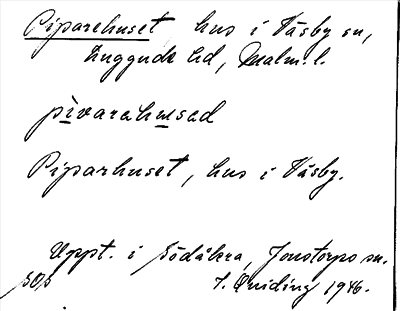 Piparehuset, hus i Väsby sn,
Luggude hd, Malm. l.
pìvarahusad
Piparhuset, hus i Väsby.
Uppt. i Södåkra, Jonstorps sn.
J. Qviding 1946.